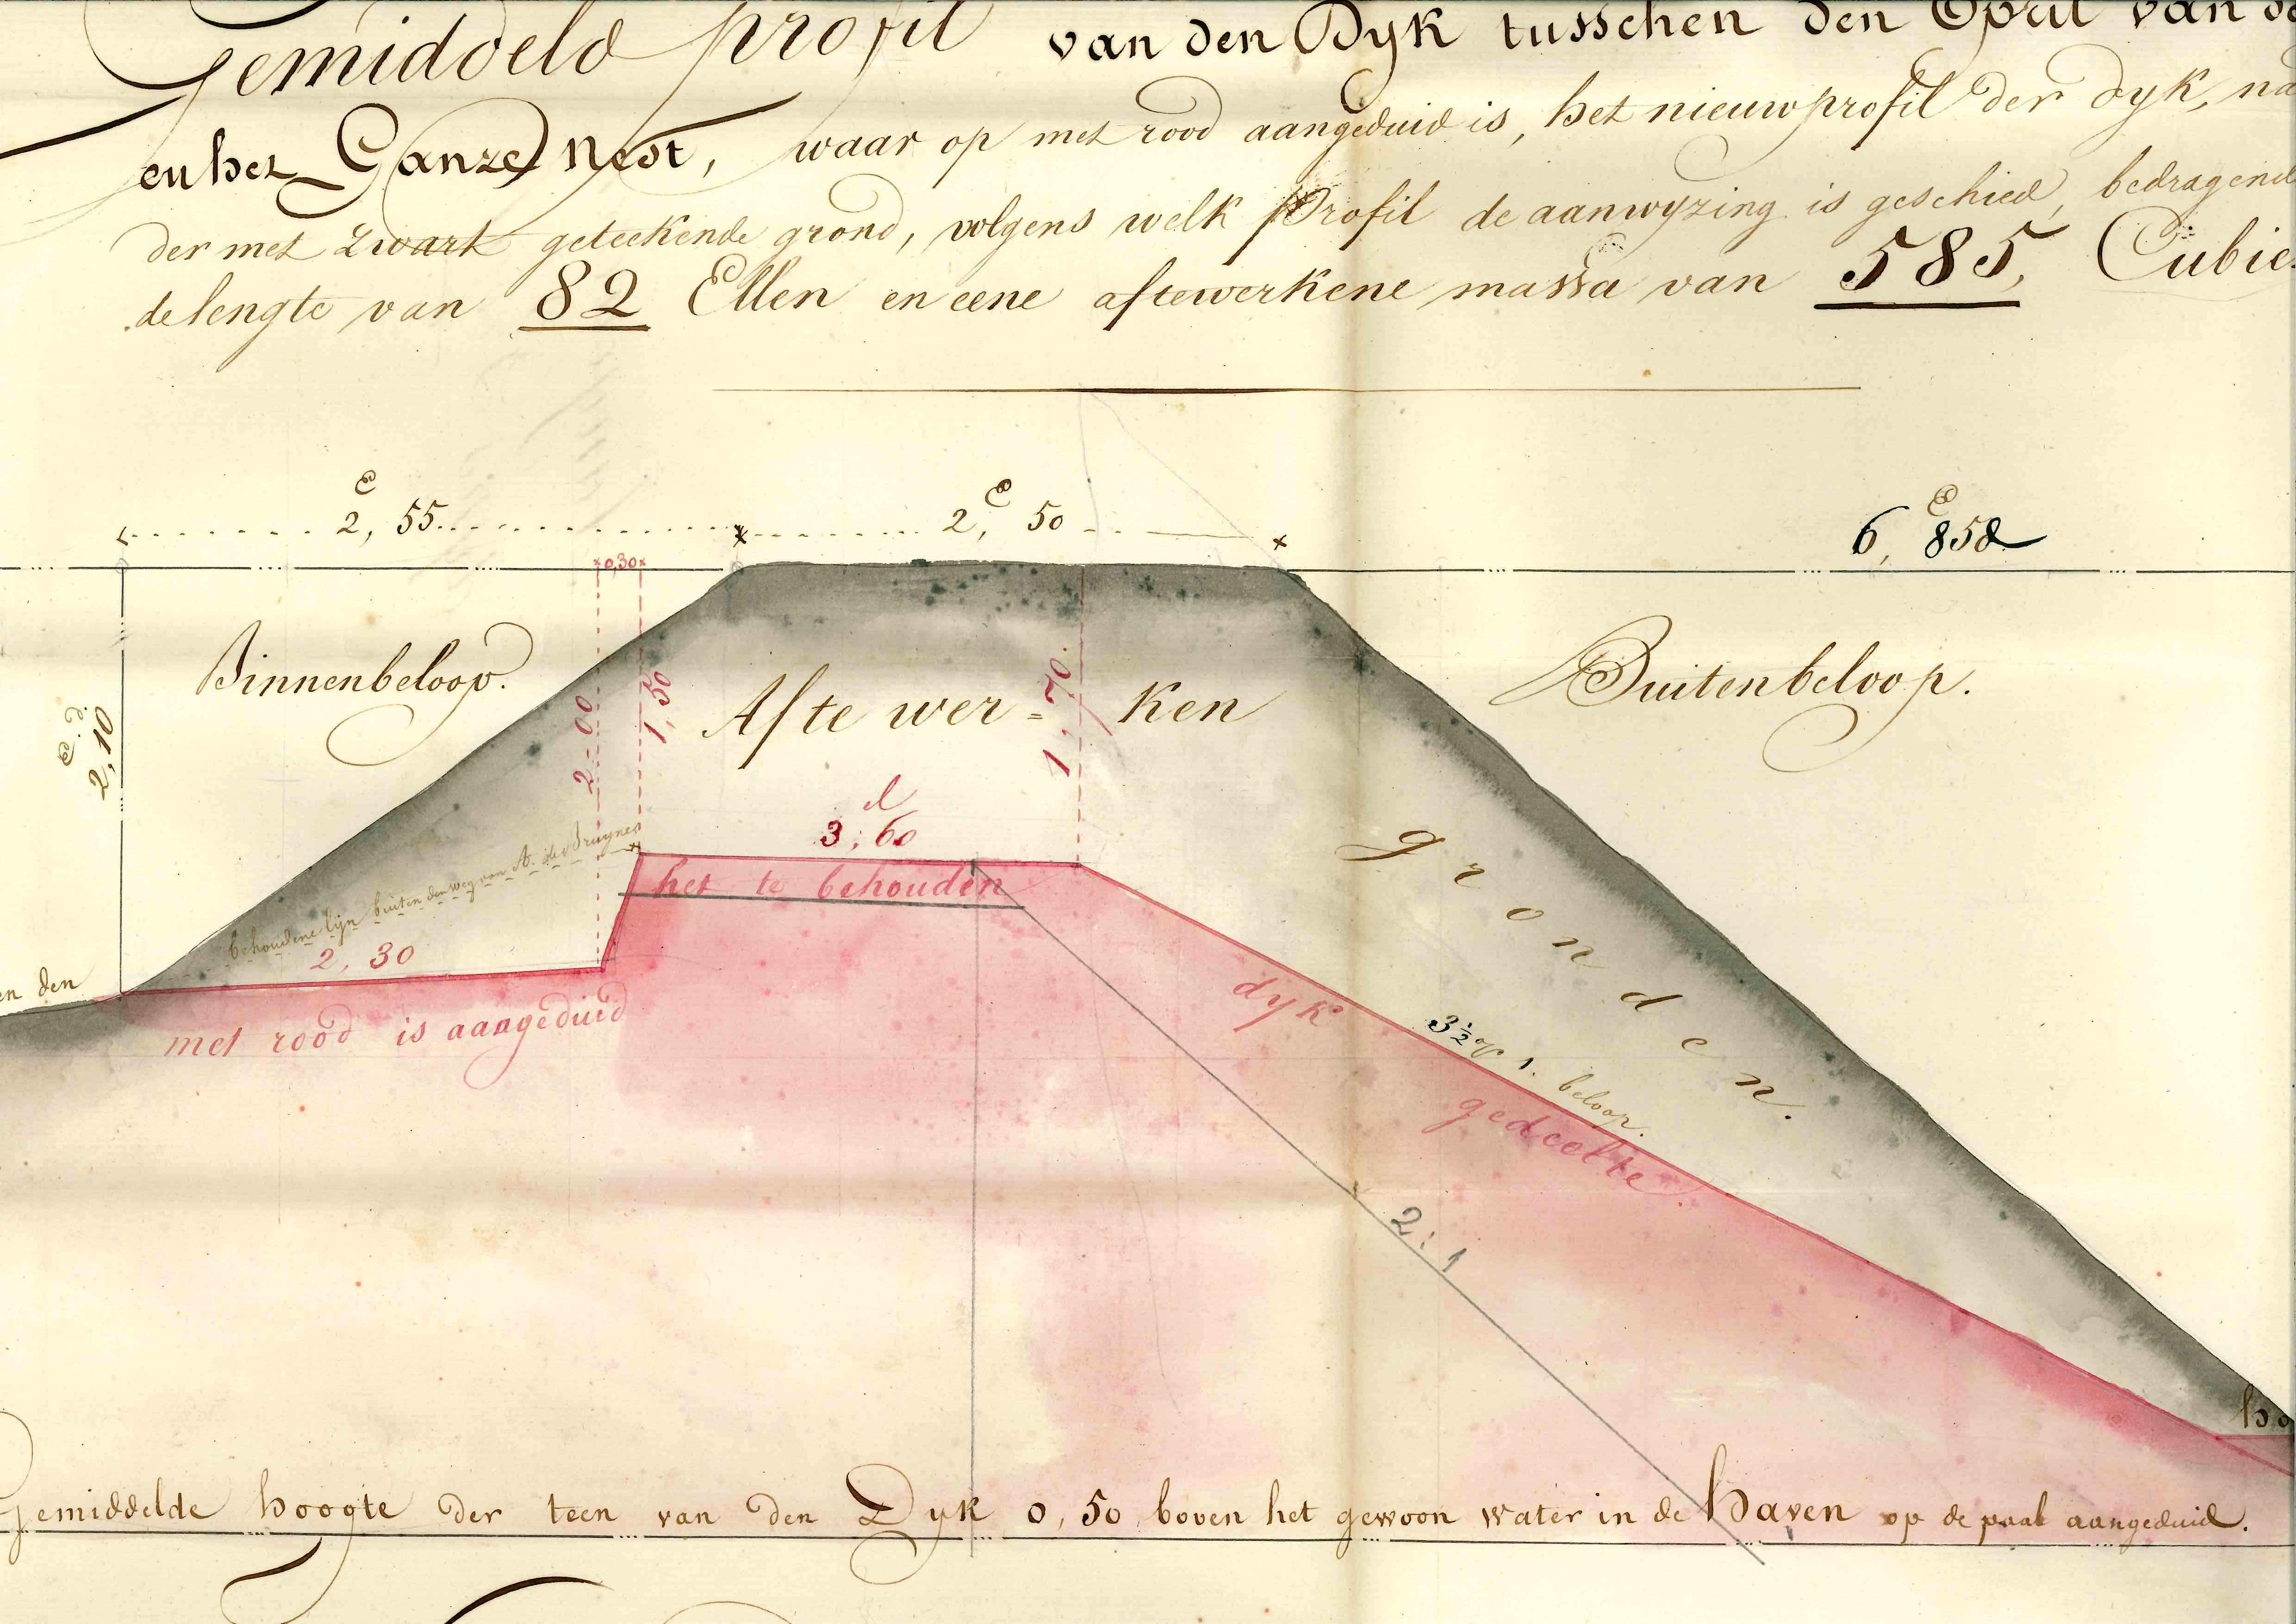 Gemiddeld profil van den Dyk tusschen den Opril van de
en het Ganze Nest, waar op met rood aangeduid is, het nieuw profil der dyk, na
der met zwart geteekende grond, volgens welk Profil de aanwyzing is geschied, bedragend
de lengte van 82 Ellen en eene aftewerkene massa van 585, Cubie
E
2, 55
E
2, 50
E
6, 858
0,30
Binnenbeloop.
Buitenbeloop.
E d.
2,10
2-00
1,50
1,70
Afte wer=ken
gronden.
el
3,60
behoudene lijn buiten den weg van A. de Bruyne
het te behouden
2, 30
en den
met rood is aangeduid
dyk
3½ op 1. beloop.
gedeelte.
2:1
ho
Gemiddelde hoogte der teen van den Dyk 0,50 boven het gewoon water in de Haven op de paal aangeduid.